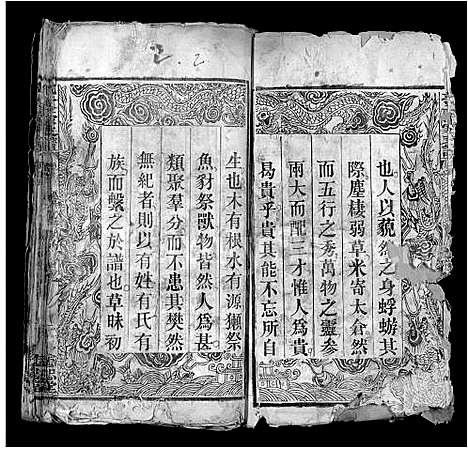 也人以藐然之身蜉蝣其
際塵棲弱草米寄太倉然
而五行之秀萬物之靈參
兩大而配三才惟人為貴
曷貴乎貴其能不忘所自
生也木有根水有源獺祭
魚豺祭獸物皆然人為甚
類聚羣分而不患其樊然
無紀者則以有姓有氏有
族而繫之於譜也草昧初